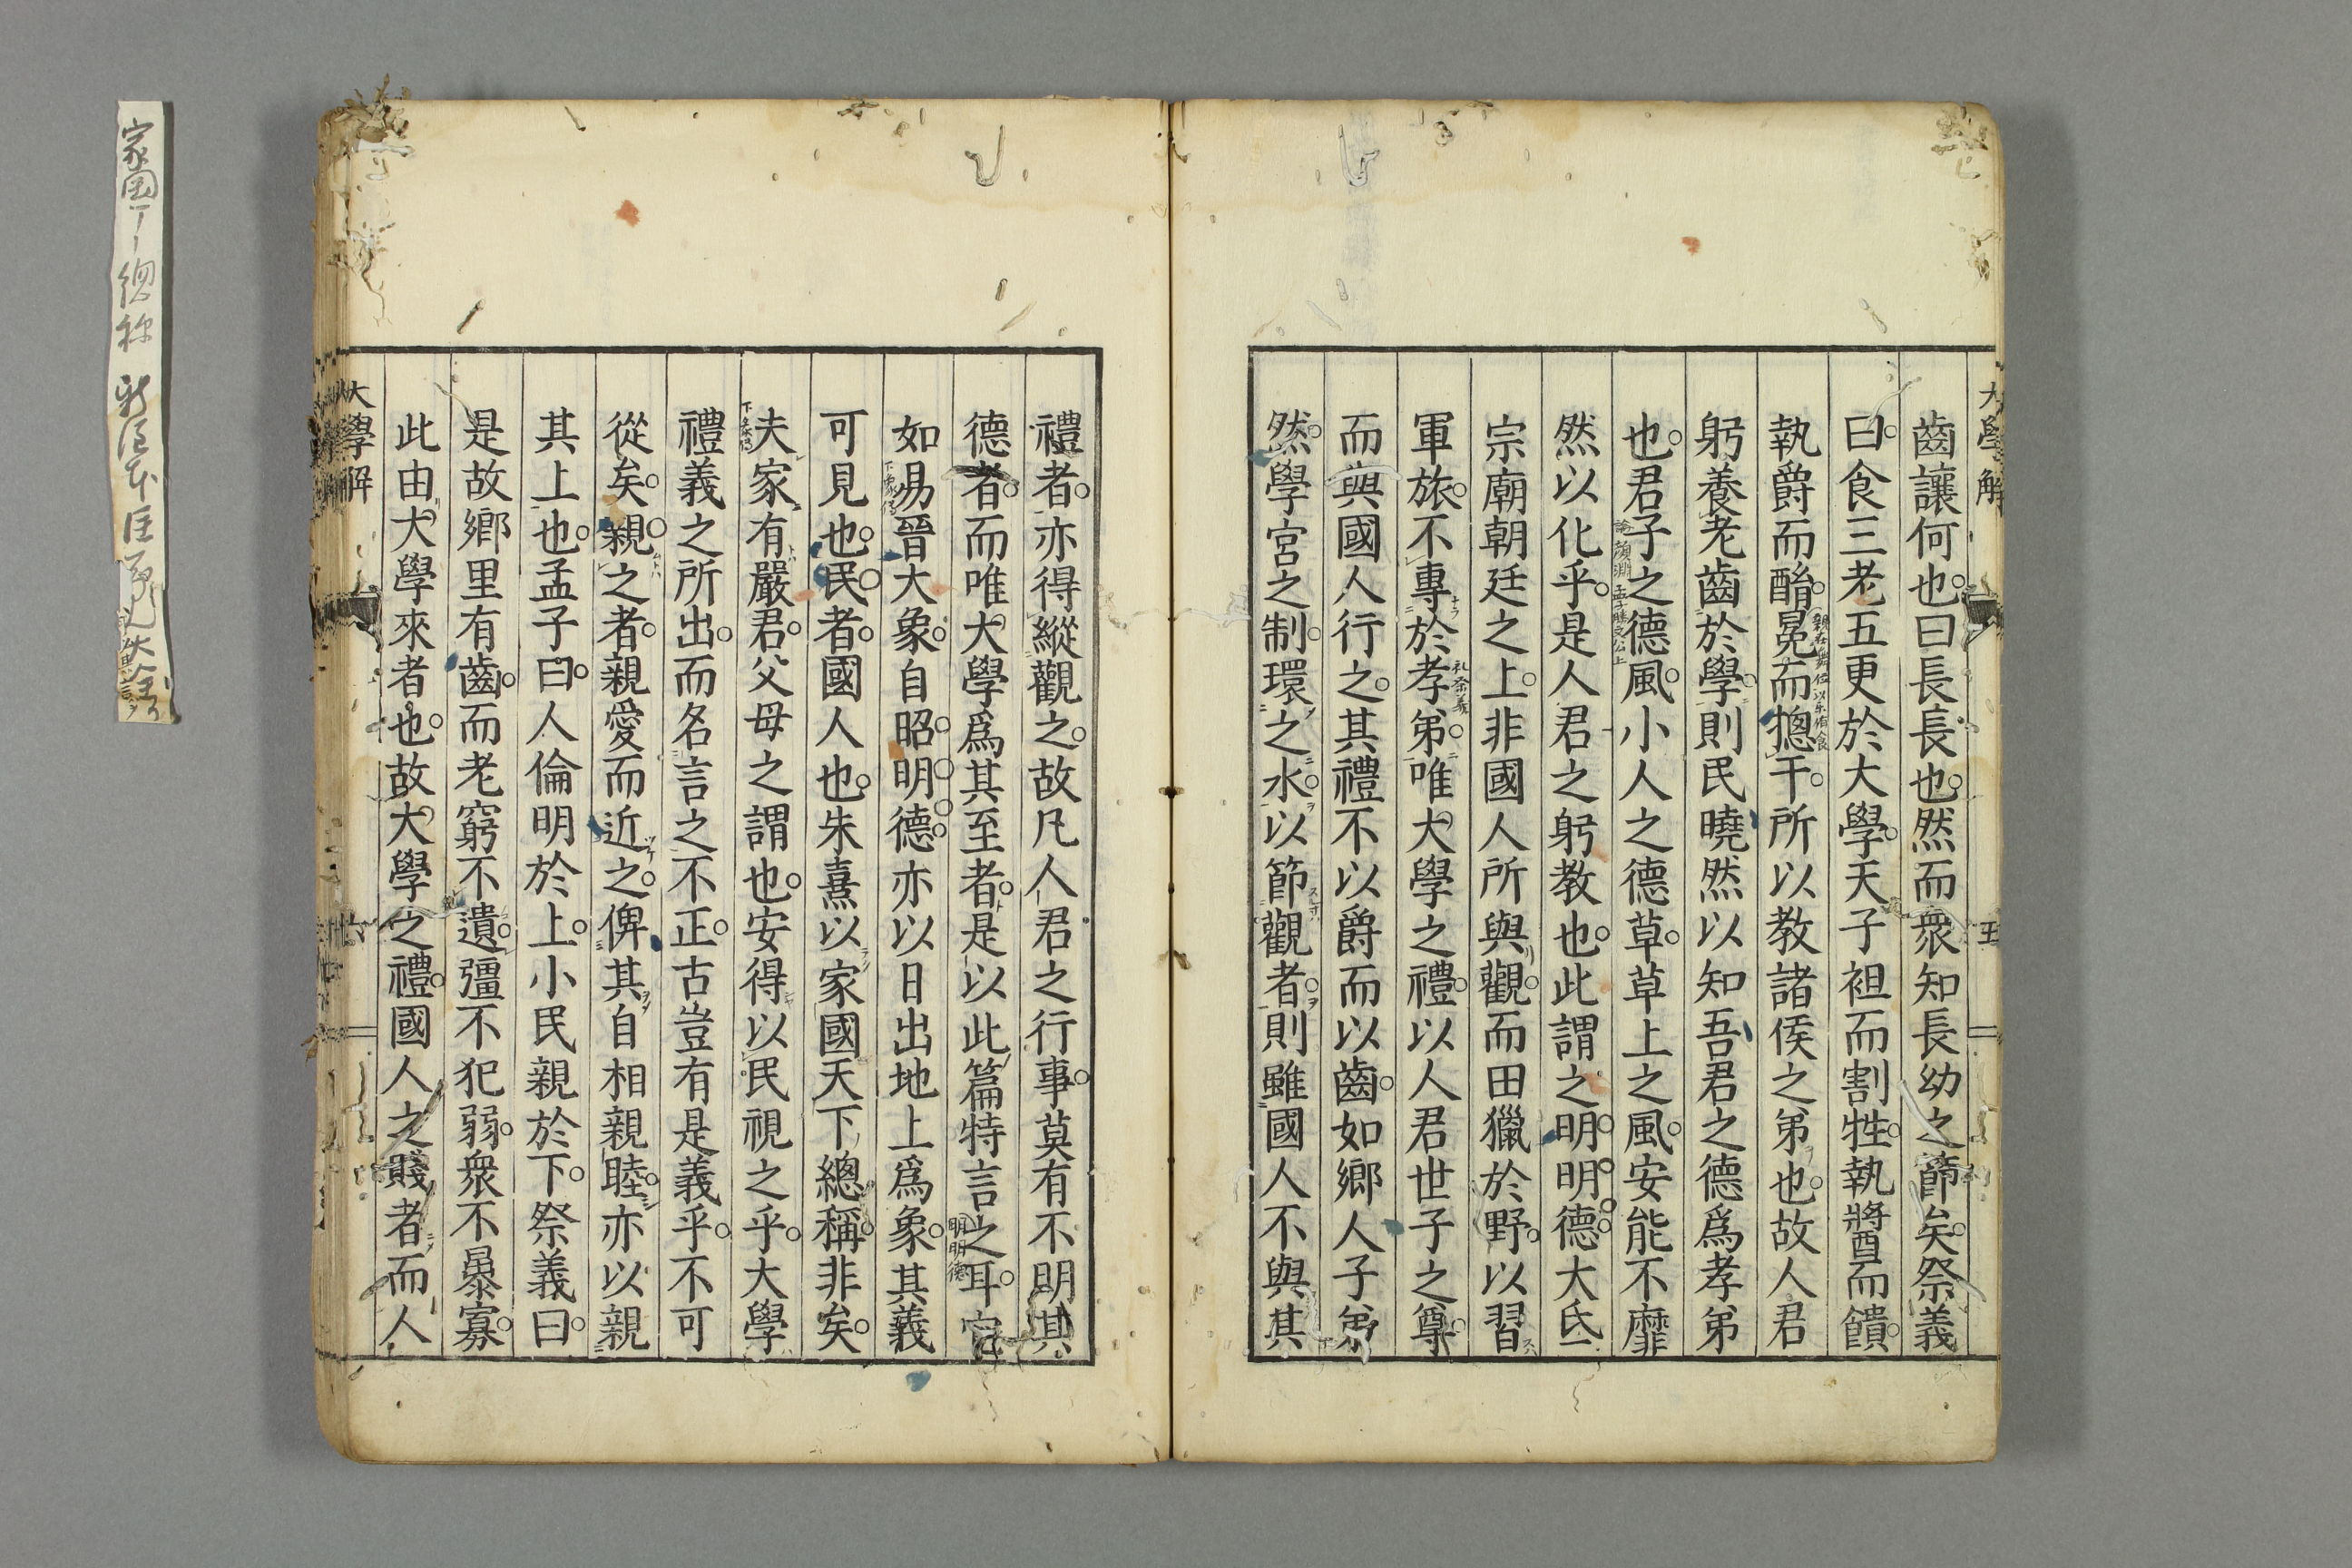 大學解
五
齒讓何也曰長長也然而衆知長幼之節矣祭義
曰食三老五更於大學天子袒而割牲執醬而饋
執爵而酳冕而摠干所以教諸侯之弟也故人君
躬養老齒於學則民曉然以知吾君之德爲孝弟
也君子之德風小人之德草草上之風安能不靡
然以化乎是人君之躬教也此謂之明明德大氐
宗廟朝廷之上非國人所與觀而田獵於野以習
軍旅不專於孝弟唯大學之禮以人君世子之尊
而與國人行之其禮不以爵而以齒如鄉人子弟
然學宮之制環之水以節觀者則雖國人不與其
禮者亦得縱觀之故凡人君之行事莫有不明其
德者而唯大學爲其至者是以此篇特言之耳
如易晉大象自昭明德亦以日出地上爲象其義
可見也民者國人也朱熹以家國天下總稱非矣
夫家有嚴君父母之謂也安得以民視之乎大學
禮義之所出而名言之不正古豈有是義乎不可
從矣親之者親愛而近之俾其自相親睦亦以親
其上也孟子曰人倫明於上小民親於下祭義曰
是故鄉里有齒而老窮不遺彊不犯弱衆不暴寡
此由大學來者也故大學之禮國人之賤者而人
大學解
六